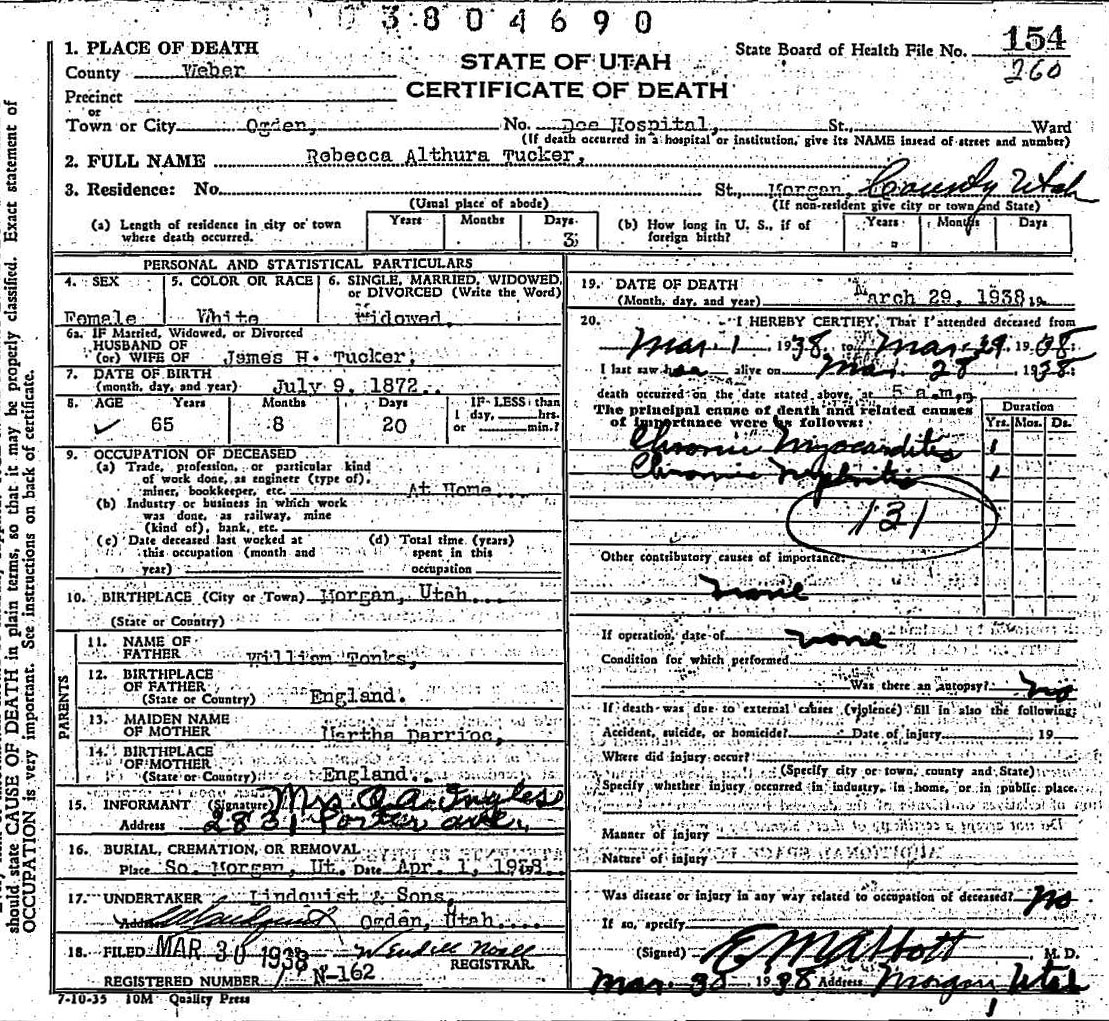 03804690
154
260
State Board of Health File No.
STATE OF UTAH
CERTIFICATE OF DEATH
1. PLACE OF DEATH
County Weber
Precinct
or
Town or City Ogden, No. Dee Hospital, St., Ward
(If death occurred in a hospital or institution, give its NAME insead of street and number)
2. FULL NAME Rebecca Althura Tucker,
3. Residence: No. St., Morgan, County Utah
(Usual place of abode) (If non-resident give city or town and State)
(a) Length of residence in city or town where death occurred. Years Months Days 3
(b) How long in U. S., if of foreign birth? Years Months Days
PERSONAL AND STATISTICAL PARTICULARS
4. SEX Female
5. COLOR OR RACE White
6. SINGLE, MARRIED, WIDOWED, or DIVORCED (Write the Word) Widowed,
6a. IF Married, Widowed, or Divorced
HUSBAND OF
(or) WIFE OF James H. Tucker,
7. DATE OF BIRTH
(month, day, and year) July 9, 1872.
8. AGE Years Months Days IF LESS than
65 8 20 1 day, hrs.
or min.?
9. OCCUPATION OF DECEASED
(a) Trade, profession, or particular kind
of work done, as engineer (type of),
miner, bookkeeper, etc. At Home.
(b) Industry or business in which work
was done, as railway, mine
(kind of), bank, etc.
(c) Date deceased last worked at
this occupation (month and
year)
(d) Total time (years)
spent in this
occupation
10. BIRTHPLACE (City or Town) Morgan, Utah.
(State or Country)
PARENTS
11. NAME OF
FATHER William Tonks,
12. BIRTHPLACE
OF FATHER
(State or Country) England.
13. MAIDEN NAME
OF MOTHER Martha
14. BIRTHPLACE
OF MOTHER
(State or Country) England.
15. INFORMANT (Signature) Mrs. O. A. Ingles
Address 2831 Porter ave.
16. BURIAL, CREMATION, OR REMOVAL
Place So. Morgan, Ut. Date Apr. 1, 1938.
17. UNDERTAKER Lindquist & Sons,
Address Ogden, Utah.
18. FILED MAR 30 1938
REGISTRAR.
REGISTERED NUMBER N-162
7-10-35 10M Quality Press
19. DATE OF DEATH
(Month, day, and year) March 29, 1938 19
20. I HEREBY CERTIFY, That I attended deceased from
Mar. 1 1938, to Mar. 29 1938.
I last saw h alive on Mar. 28 1938
death occurred on the date stated above, at 5 a.m.
The principal cause of death and related causes
of importance were as follows:
Duration
Yrs. Mos. Ds.
Chronic Myocarditis 1
Chronic Nephritis 1
131
Other contributory causes of importance:
none
If operation, date of none
Condition for which performed
Was there an autopsy? no
If death was due to external causes (violence) fill in also the following:
Accident, suicide, or homicide? Date of injury 19
Where did injury occur?
(Specify city or town, county and State)
Specify whether injury occurred in industry, in home, or in public place.
Manner of injury
Nature of injury
Was disease or injury in any way related to occupation of deceased? no
If so, specify
(Signed) M. D.
Mar. 30 1938 Address Morgan, Utah
should state CAUSE OF DEATH in plain terms, so that it may be properly classified. Exact statement of
OCCUPATION is very important. See instructions on back of certificate.